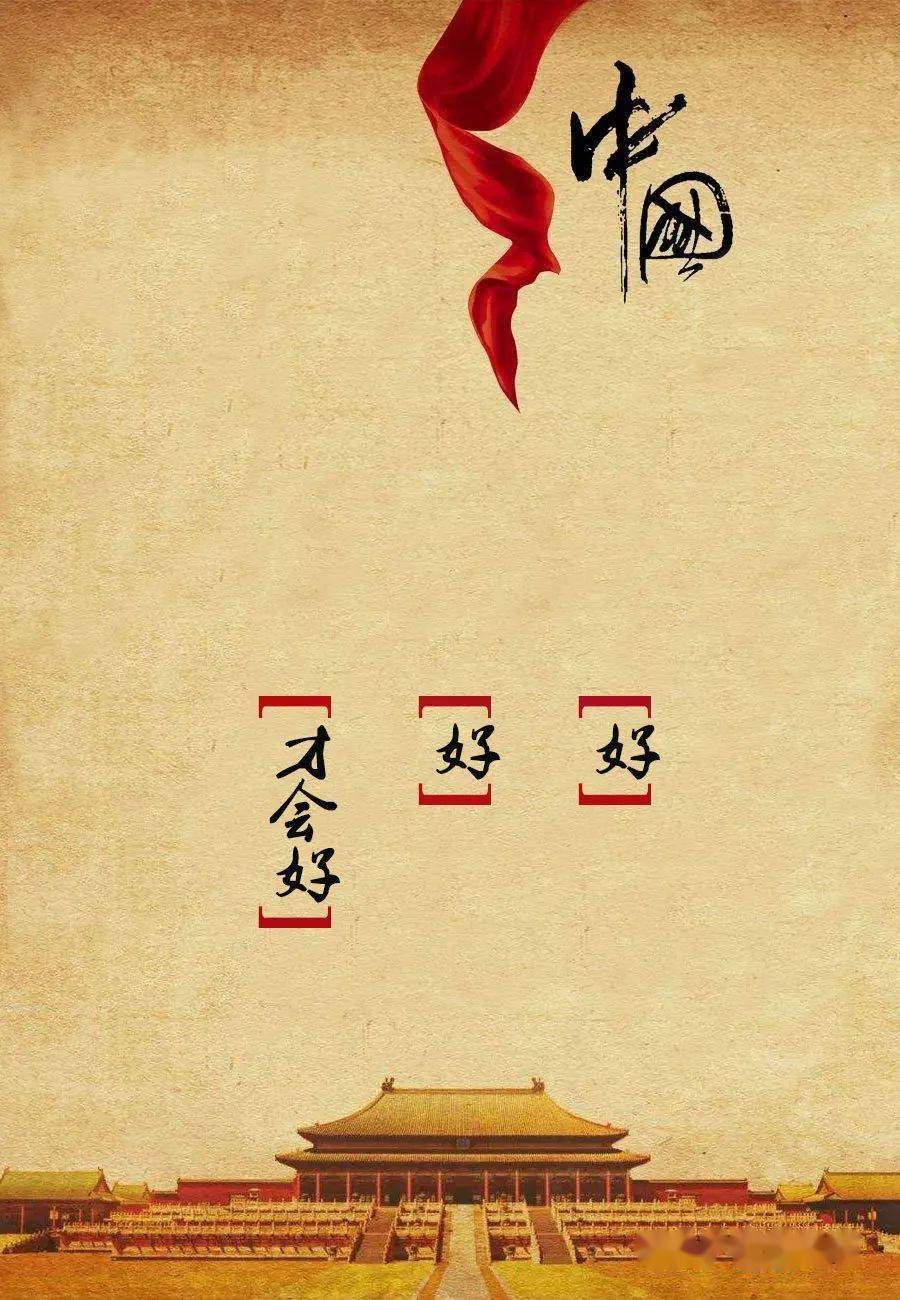 中國
好
好
才会好